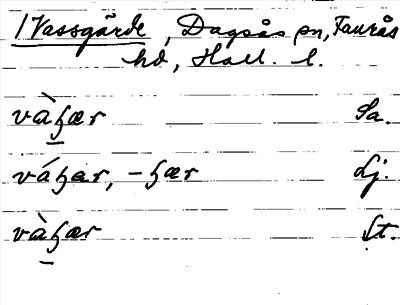 /Vassgärde, Dagsås sn, Faurås
hd, Hall. l.
vàʒær Sa.
váʒar, -ʒær Lj.
vàʒær St.